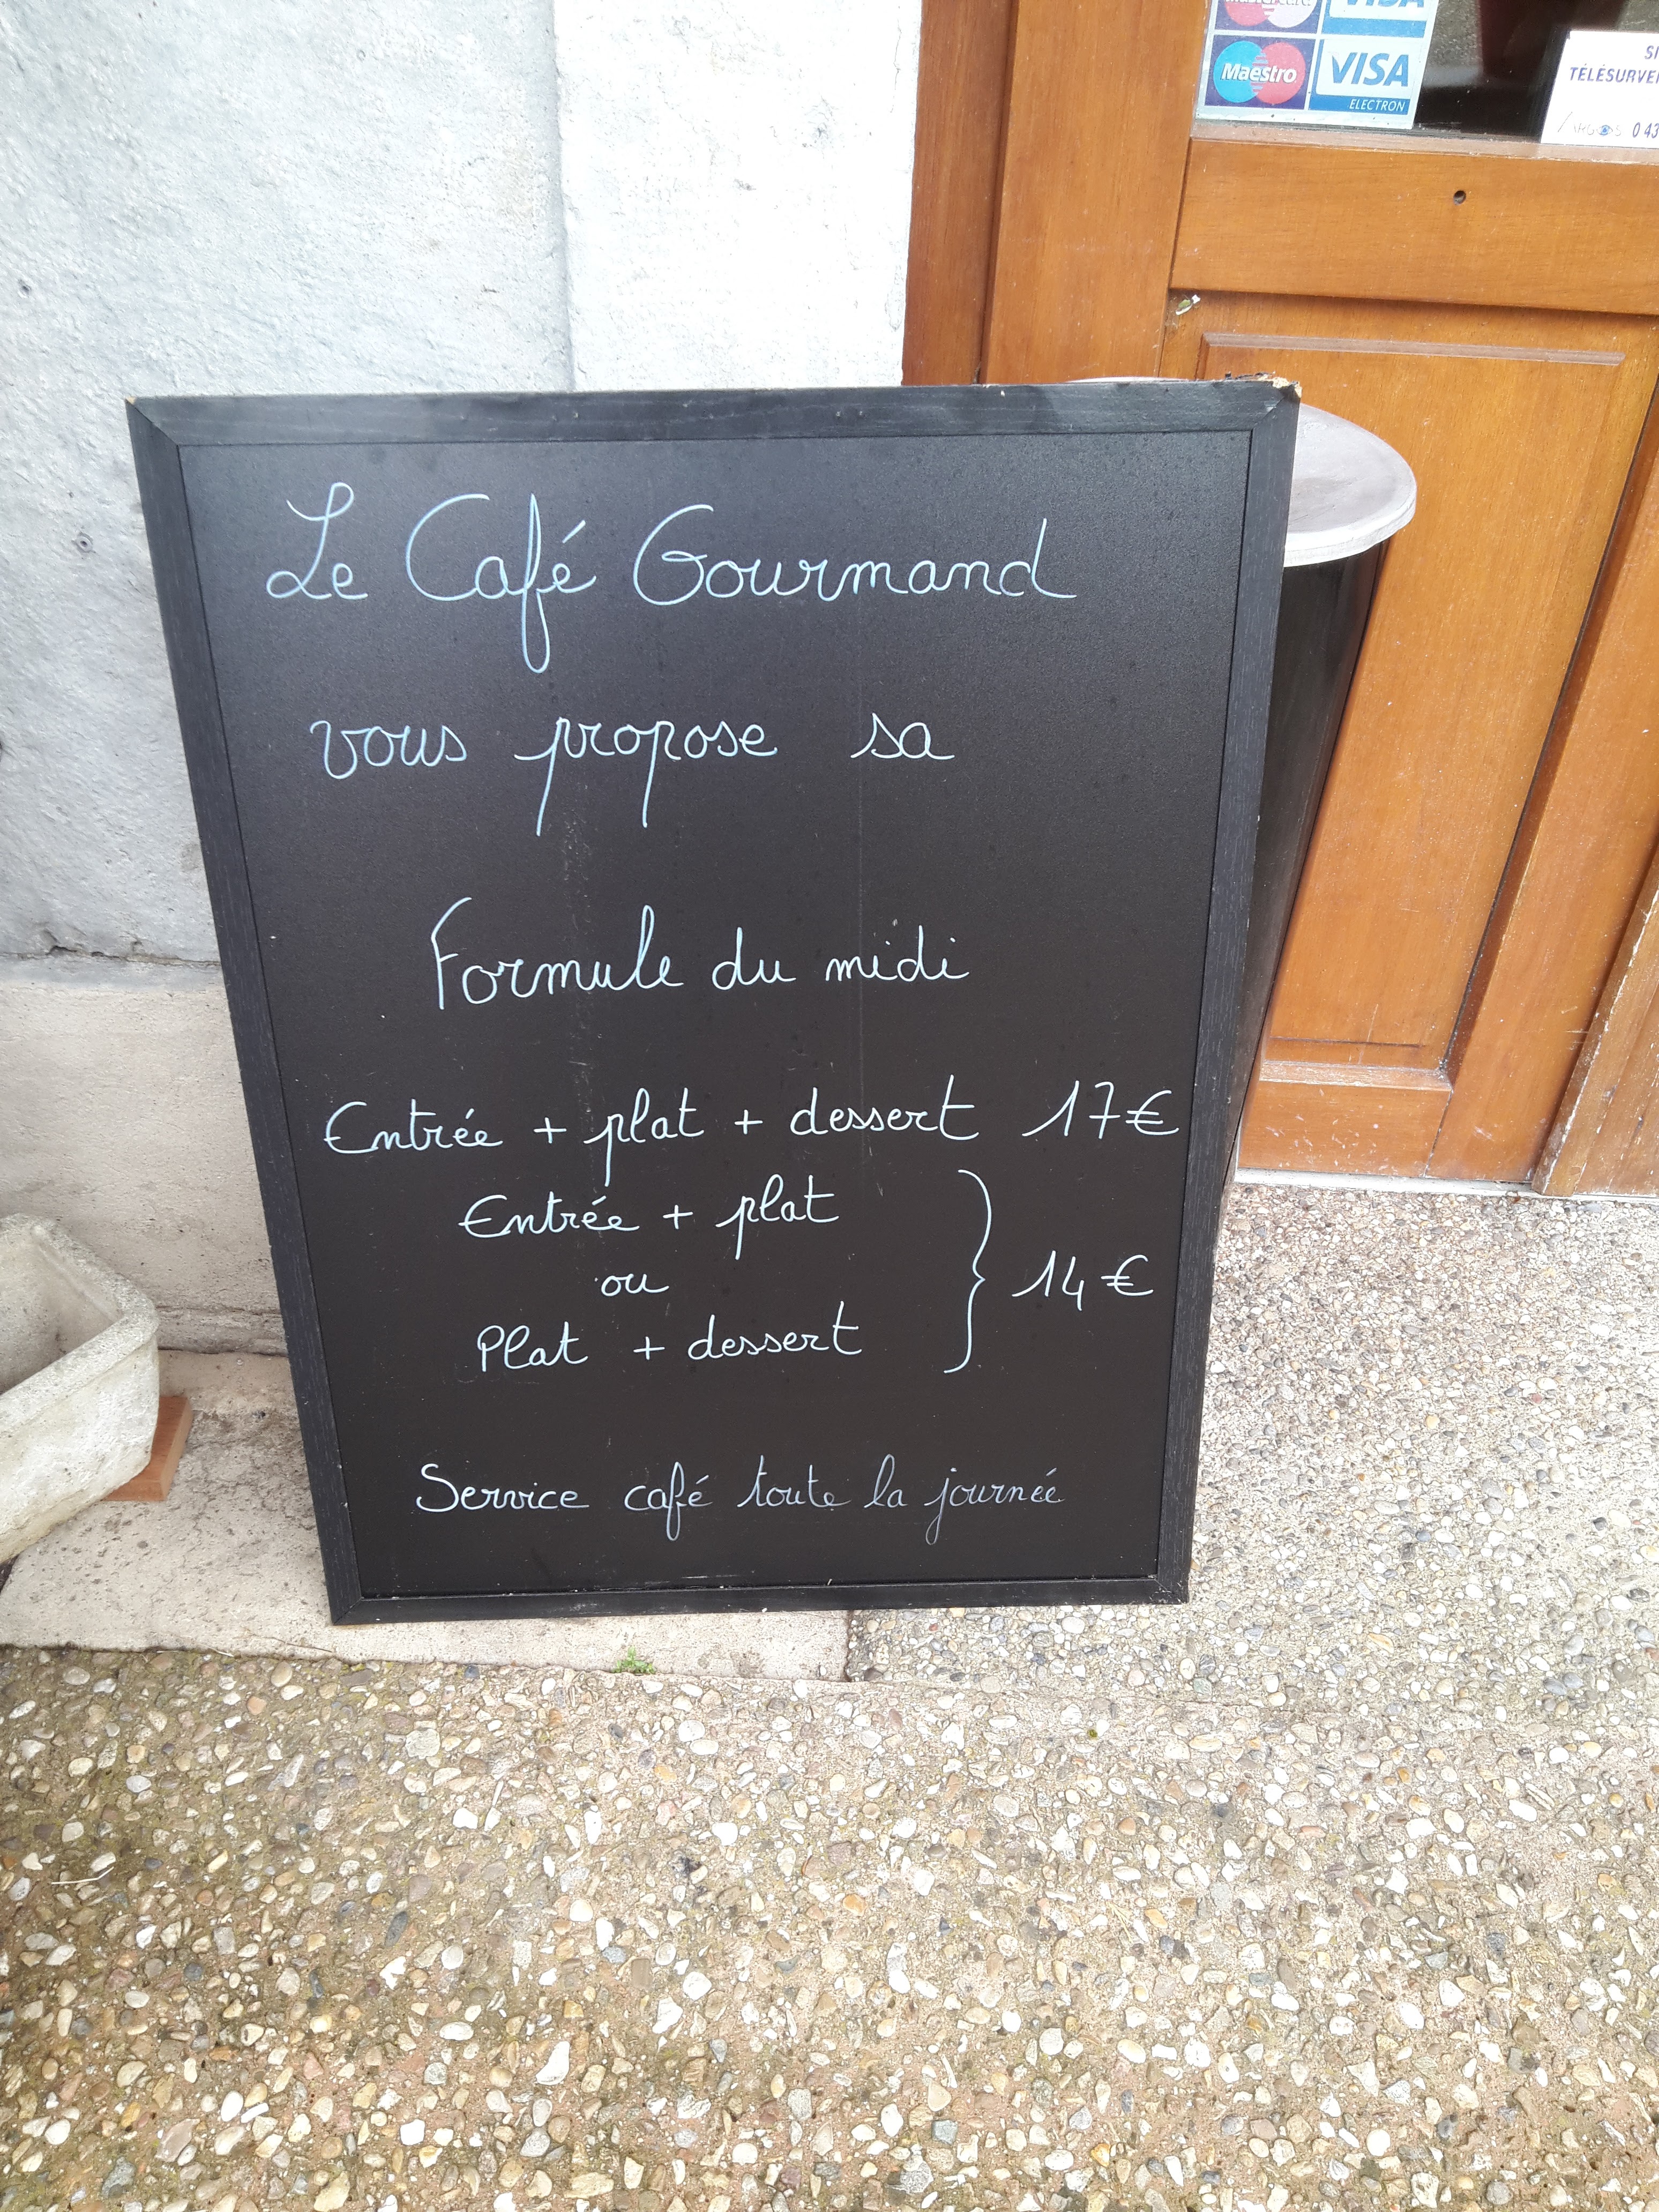 mastercard VISA
Maestro VISA
ELECTRON
TÉLÉSURVEI
ARGOS 0 43
Le Café Gourmand
vous propose sa
Formule du midi
Entrée + plat + dessert 17€
Entrée + plat
ou } 14€
Plat + dessert
Service café toute la journée